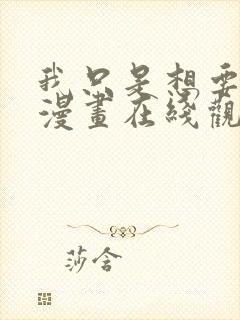 我只是想要
漫畫在綫觀
莎含